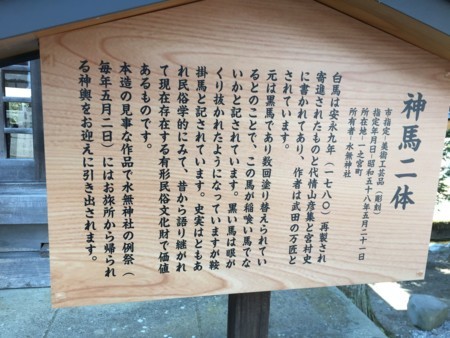 神馬二体
市指定・美術工芸品(彫刻)
指定年月日・昭和五十八年五月二十一日
所在地・一之宮町
所有者・水無神社
白馬は安永九年(一七八〇)再製され
寄進されたものと代情山彦集と宮村史
に書かれてあり、作者は武田の万匠と
されています。
元は黒馬であり数回塗り替えられてい
るとのことで、この馬が稲喰い馬でな
いかと記されています。黒い馬は眼が
くり抜かれたようになっていますが鞍
掛馬と記されています。史実はともあ
れ民俗学的にみて、昔から語り継がれ
て現在存在する有形民俗文化財で価値
あるものです。
本造の見事な作品で水無神社の例祭(
毎年五月二日)にはお旅所から帰られ
る神輿をお迎えに引き出されます。